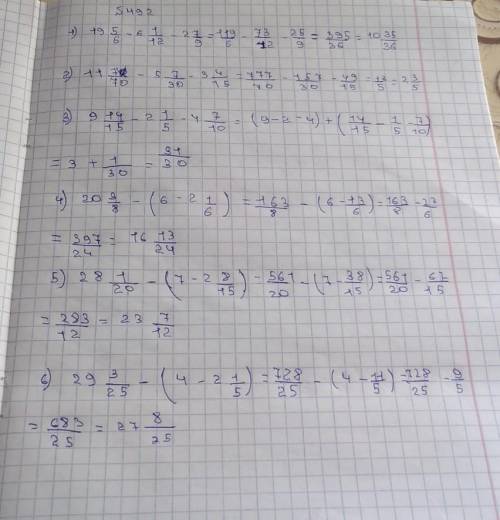 5492
1) 19 5/6 - 6 1/12 - 2 7/9 = 119/6 - 73/12 - 25/9 = 395/36 = 10 35/36
2) 11 /70 - 5 7/30 - 3 4/15 = 777/70 - 157/30 - 49/15 = 13/5 = 2 3/5
3) 9 14/15 - 2 1/5 - 4 7/10 = (9-2-4) + (14/15 - 1/5 - 7/10)
= 3 + 1/30 = 91/30
4) 20 3/8 - (6 - 2 1/6) = 163/8 - (6 - 13/6) = 163/8 - 23/6
= 397/24 = 16 13/24
5) 28 1/20 - (7 - 2 8/15) = 561/20 - (7 - 38/15) = 561/20 - 67/15
= 283/12 = 23 7/12
6) 29 3/25 - (4 - 2 1/5) = 728/25 - (4 - 11/5) = 728/25 - 9/5
= 683/25 = 27 8/25